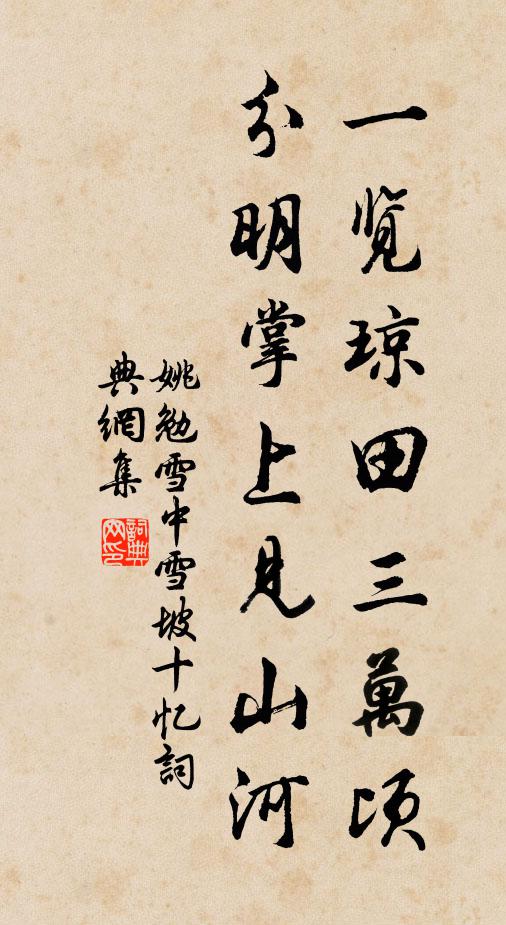 一览琼田三萬顷
分明掌上見山河
姚勉雪中雪坡十忆詞
典網集
詞典网印